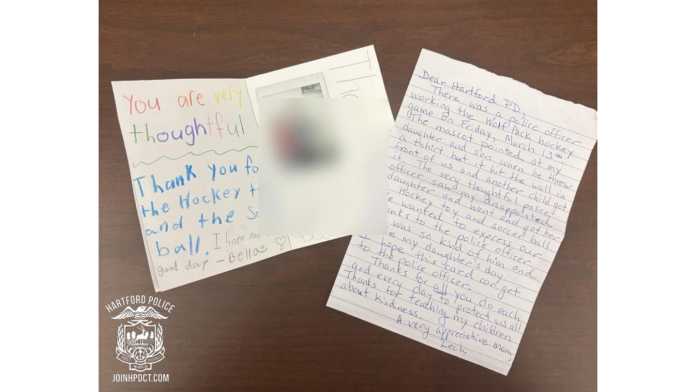 You are very
thoughtful
Thank you fo
the Hockey t
and the s
ball.
I hope you
good day - Bella
Dear Hartford PD,
There was a police officer
working the Wolf Pack hockey
game on Friday, March 13
The mascot pointed at my
daughter and son when he threw
a tshirt but it hit the wall in
front of us and another child got
it. The very thoughtful police
officer saw my disappointed
daughter and went and got her
Hockey toy, and soccer ball
we wanted to express our
thanks to the police officer
was so kind of him and
made my daughter's day
I hope this card can get
to the police officer
Thanks for all you do each
and every day to protect us all
Thanks for teaching my children
about kindness.
A very appreciative mom,
Leah
HARTFORD POLICE
JOINHPDCT.COM